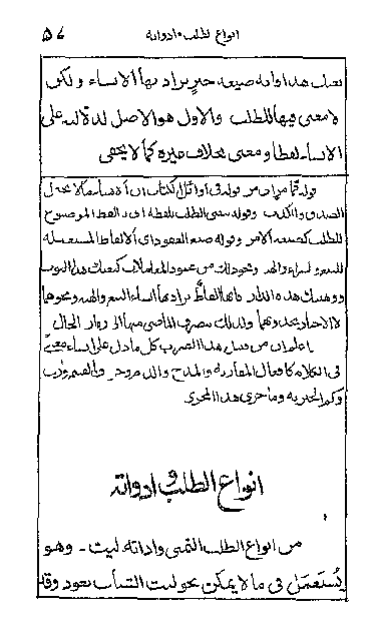 انواع الطلب وادواته ٥٧
فعل هذا وانه صيغة خبر يراد بها الانشاء ولكن
لا معنى فيها للطلب والاول هو الاصل لدلالته على
الانشاء لفظا ومعنى بخلاف غيره كما لا يخفى
قوله كما مر في اوائل الكتاب ان الانشاء ما لا يحتمل
الصدق والكذب وقوله سمى الطلب للفظه اى اللفظ الموضوع
للطلب كصيغة الامر وقوله صيغ العقود اى الالفاظ المستعملة
للبيع والشراء والهبة ونحو ذلك من عقود المعاملات كبعتك هذا الثوب
ووهبتك هذه الدار فانها الفاظ يراد بها انشاء البيع والهبة ونحوهما
لا الاخبار بحدوثهما ولذلك ينصرف الماضى منها الى زمان الحال
اعلم ان من قبيل هذا الضرب كل ما دل على انشاء معنى
فى الكلام كافعال المقاربة والمدح والذم وحروف القسم ورب
وكم الخبرية وما جرى هذا المجرى
انواع الطلب وادواته
من انواع الطلب التمنى واداته ليت ـ وهو
يُستَعمَل فى ما لا يمكن نحو ليت الشباب يعود وقد